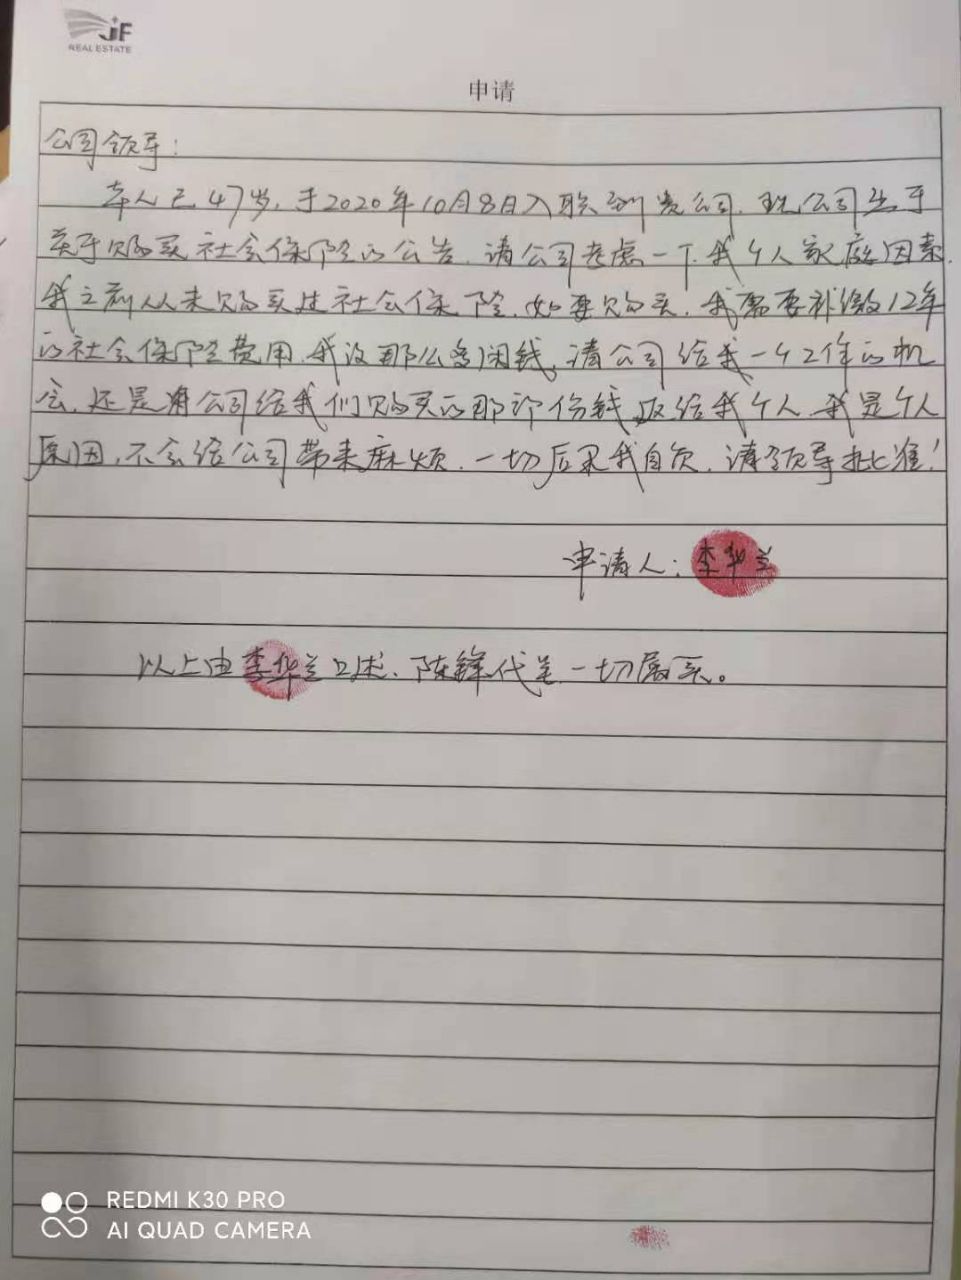 JF
REAL ESTATE
申请
公司领导:
本人已47岁,于2020年10月8日入职 贵公司.现公司出于
关于购买社会保险的公告.请公司考虑一下我个人家庭因素.
我之前从未购买过社会保险.如要购买.我需要补缴12年
的社会保险费用.我没那么多闲钱.请公司给我一个工作的机
会.还是将公司给我们购买的那部份钱返给我个人.我是个人
原因,不会给公司带来麻烦.一切后果我自负.请领导批准!
申请人:李华兰
以上由李华兰口述、陈锋代笔.一切属实。
REDMI K30 PRO
AI QUAD CAMERA